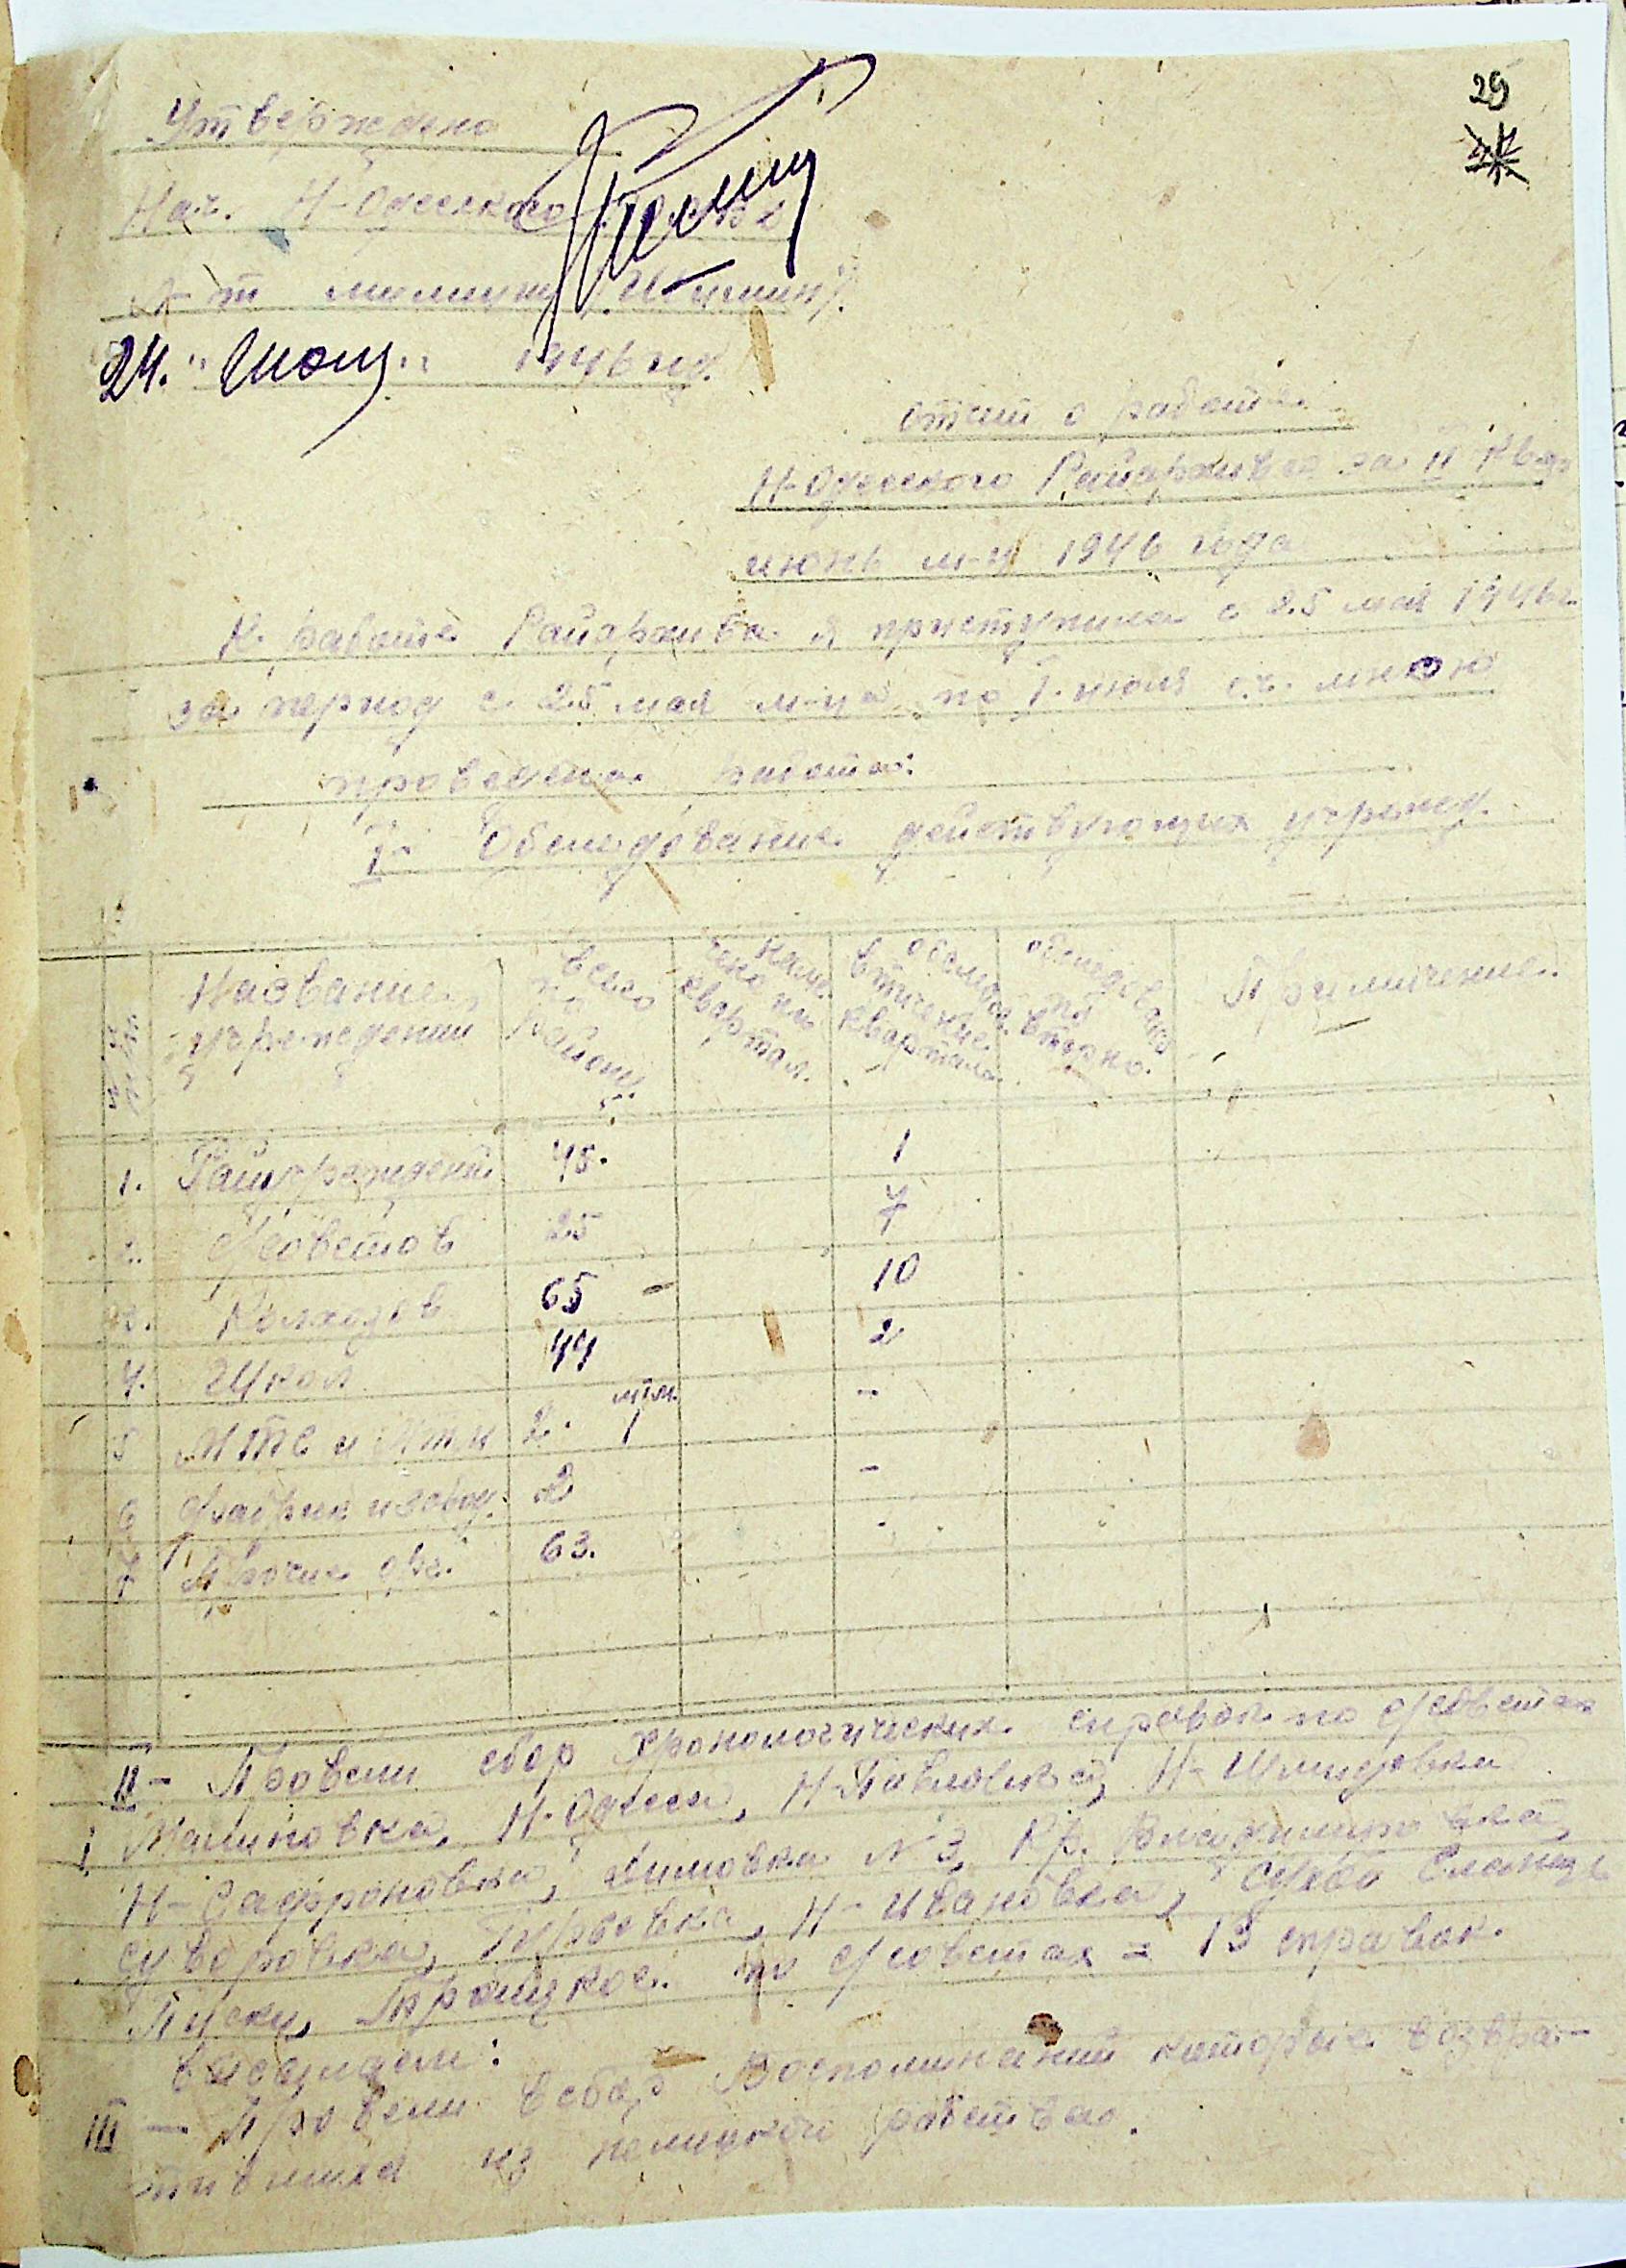 29
Утверждено
Нач. Н-Одесского
л-т милиции
24. "Июня" 1946 г.
Отчет о работе
Н-Одесского Райархива за II квар
июнь м-ц 1946 года
К работе Райархива я приступила с 25 мая 1946 г.
за период с 25 мая м-ца по 1 июля с.г. мною
проведена работа:
I- Обследование действующих учрежд.
Название учреждений
всего по району
намечено на квартал.
обследов. в течение квартала
обследовано повторно.
Примечение.
1. Райучреждений 48. 1
2. с/советов 25 7
3. Колхозов 65 - 10
4. Школ 44 2
5 МТС и 2. 1 -
6 Фабрик и завод. 2 -
7 Прочие орг. 63.
II- Провели сбор хронологических справок по с/советах
Малиновка, Н-Одесса, Н-Павловка, Н-Шмидовка
Н-Сафроновка, №3, Кр. Владимировка,
Суворовка, Гурьевка, Н-Ивановка,
Пуски, Троицкое. по с/советах = 13 справок.
III - Провели сбор Воспоминаний которые возвра-
тившихся из немецкого рабства.